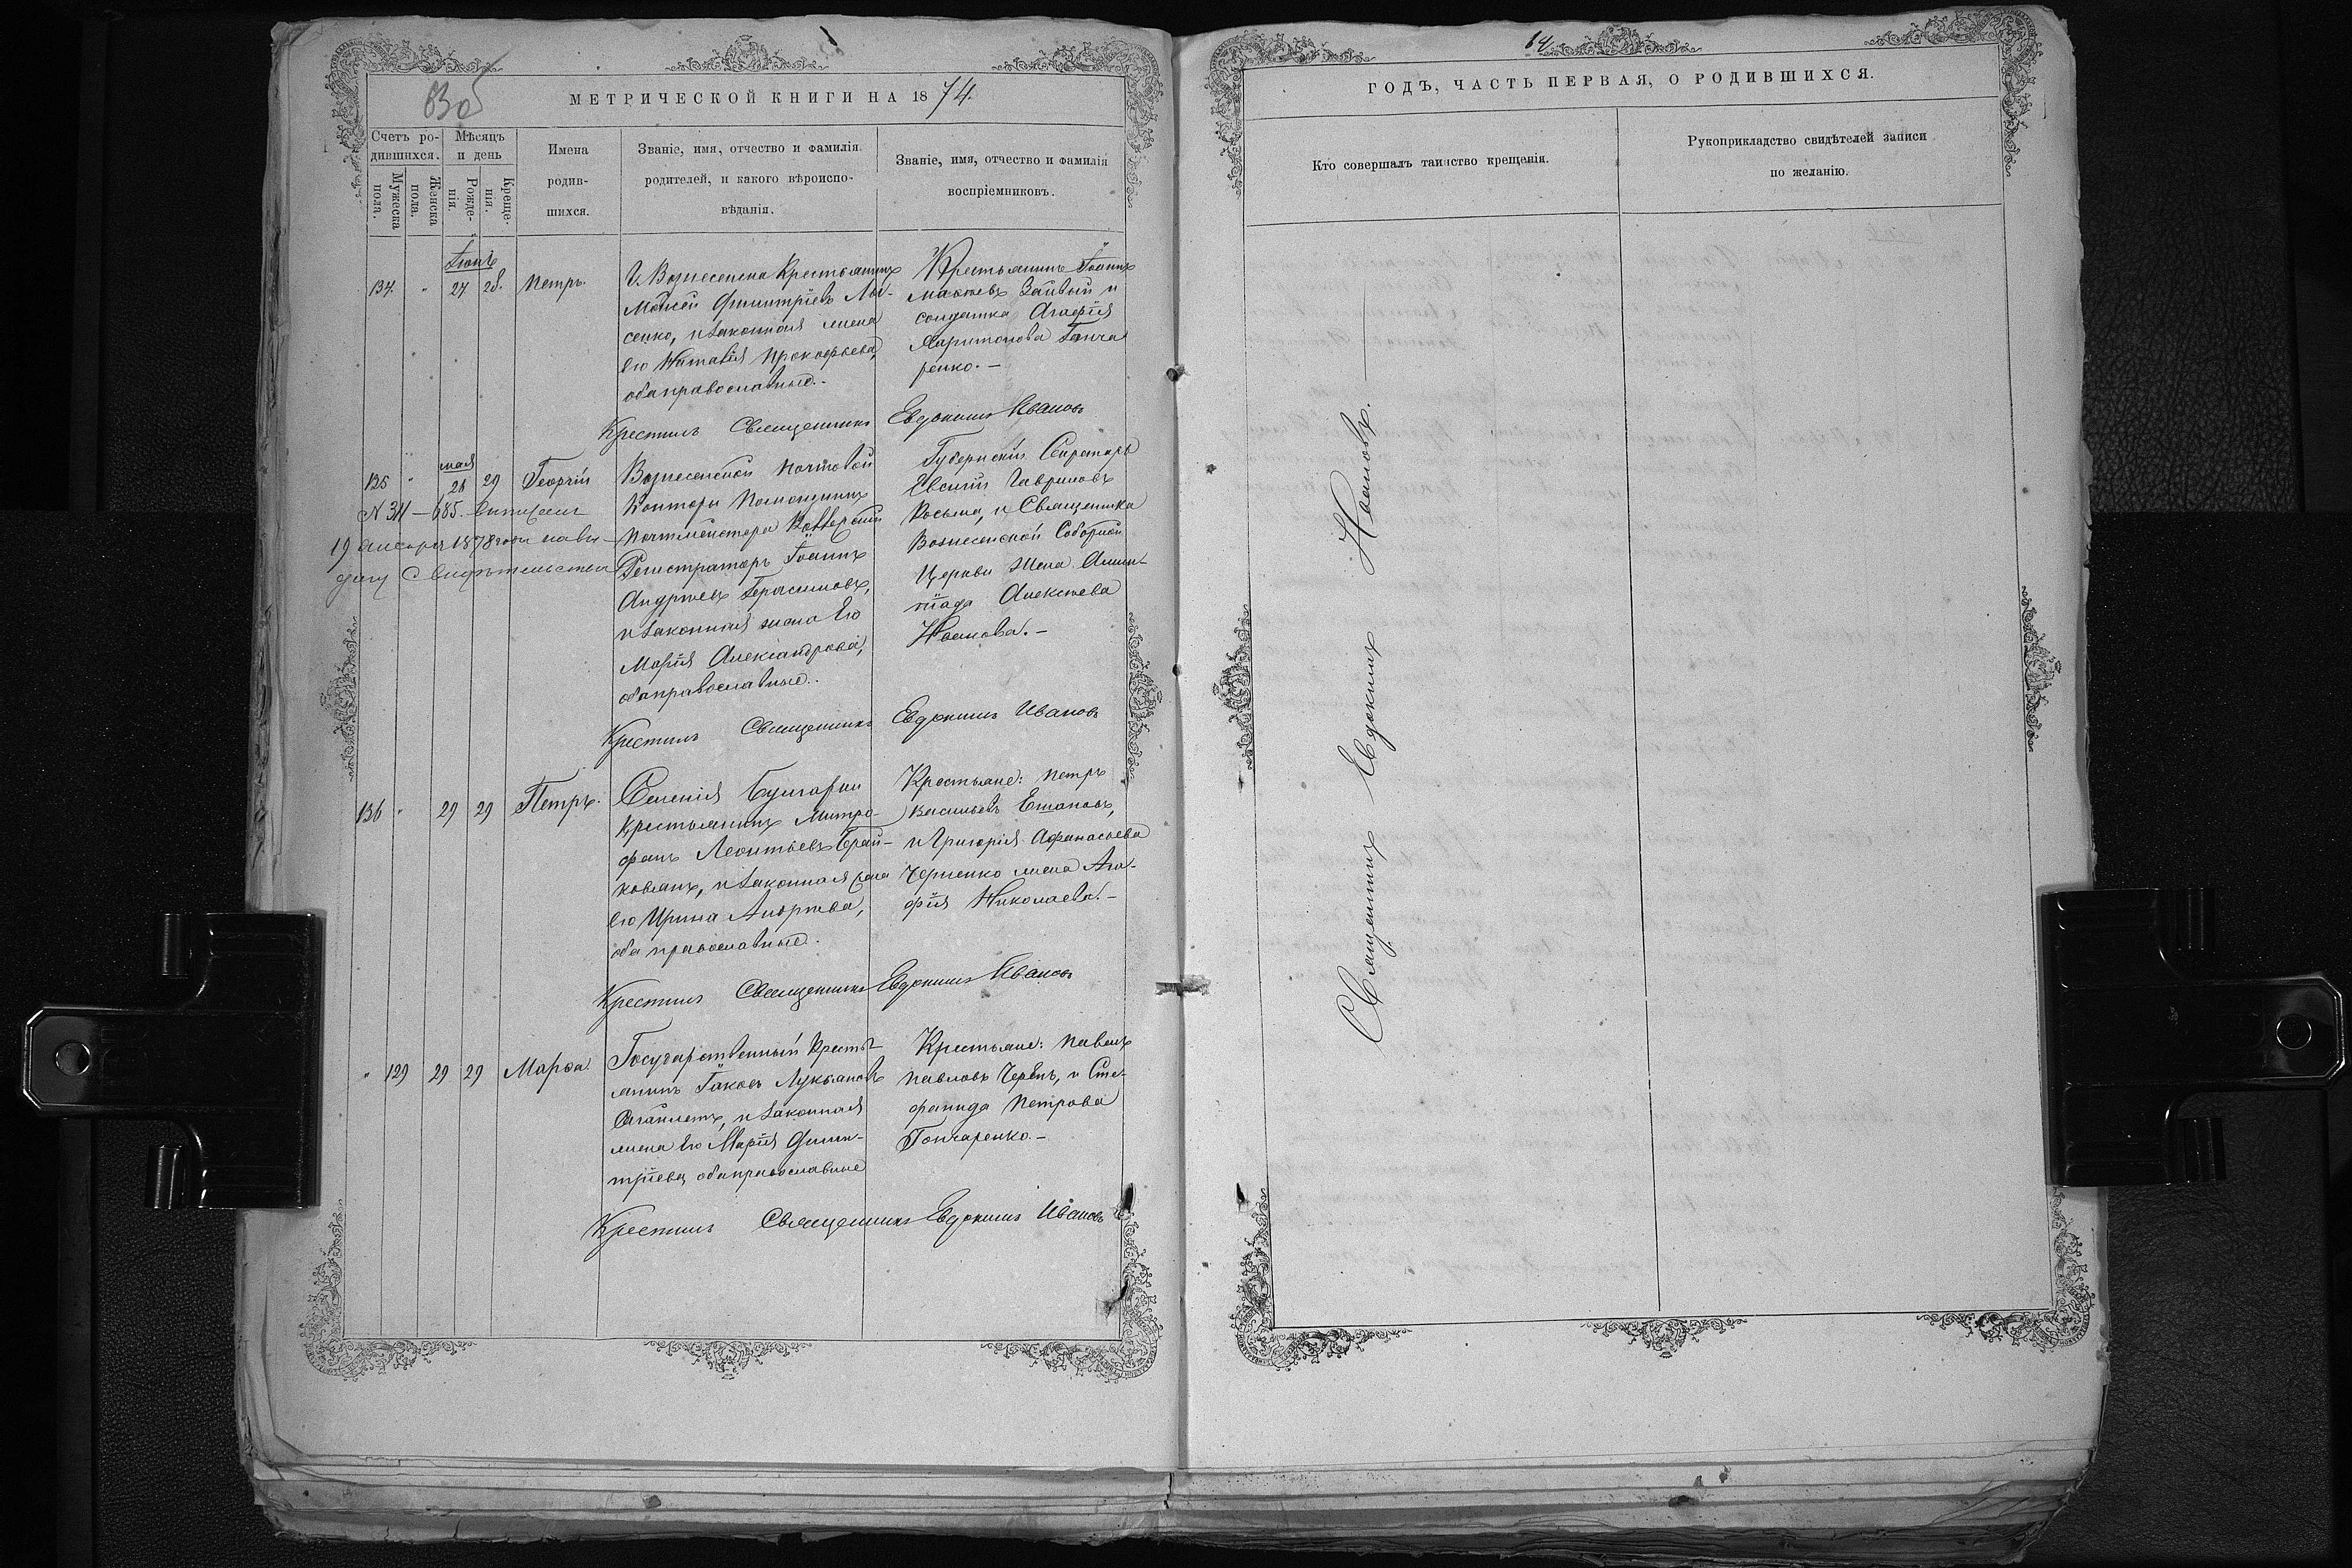 МЕТРИЧЕСКОЙ КНИГИ НА 1874.
Счетъ родившихся.
Мужеска пола.
Женска пола.
Мѣсяцъ и день
Рожденія.
Крещенія.
Имена родившихся.
Званіе, имя, отчество и фамилія
родителей, и какого вѣроиспо-
вѣданія.
Званіе, имя, отчество и фамилія
воспріемниковъ.
Іюнь
134. " 27 28. Петръ.
Г. Вознесенска Крестьянинъ
Моисей Димитріевъ Лы-
сенко, и законная жена
его Наталія Прокофьева,
оба православные.-
Крестьянинъ Іоаннъ
и
солдатка Агафія
Харитонова Гонча
ренко.-
Крестилъ Священникъ Евдокимъ Ивановъ
мая
135 " 28 29 Георгій
19 января 1878 года на вы-
дачу Свидѣтельства
Вознесенской почтовой
Конторы Помощникъ
Почтмейстера Коллежскій
Регистраторъ Іоаннъ
Андреевъ Герасимовъ,
и законная жена его
Марія Александрова,
оба православные.
Губернскій Секретарь
Евсигній Гавриловъ
Косьма, и Священника
Вознесенской Соборной
Церкви жена Олим-
піада Алексѣева
Иванова.-
Крестилъ Священникъ Евдокимъ Ивановъ
136 " 29 29 Петръ.
Селенія Булгарки
крестьянинъ Митро-
фанъ Леонтьевъ
и законная жена
его Ирина Андреева,
оба православные.
Крестьяне: Петръ
Васильевъ
и Григорія Афанасьева
Черненко жена Ага-
фія Николаева.-
Крестилъ Священникъ Евдокимъ Ивановъ
" 129 29 29 Марѳа.
Государственный Кресть-
янинъ Іаковъ Лукьяновъ
и законная
жена его Марія Дими-
тріева, оба православные
Крестьяне: Павелъ
Павловъ Черепъ, и Сте-
фанида Петрова
Гончаренко.-
Крестилъ Священникъ Евдокимъ Ивановъ
64
ГОДЪ, ЧАСТЬ ПЕРВАЯ, О РОДИВШИХСЯ.
Кто совершалъ таинство крещенія.
Рукоприкладство свидѣтелей записи
по желанію.
Священникъ Евдокимъ Ивановъ.